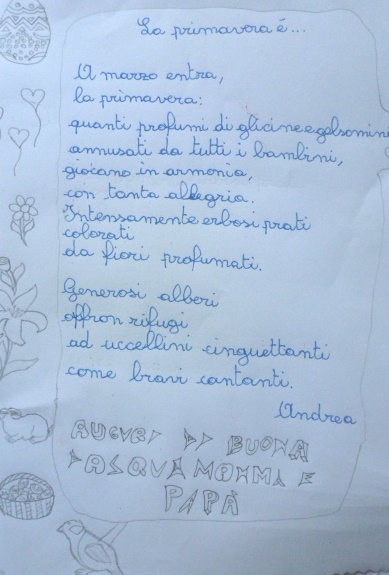 La primavera é...
A marzo entra,
la primavera:
quanti profumi di glicine e gelsomino
annusati da tutti i bambini,
giocano in armonia,
con tanta allegria.
Intensamente erbosi prati
colorati
da fiori profumati.
Generosi alberi
offron rifugi
ad uccellini cinguettanti
come bravi cantanti.
Andrea
AUGURI DI BUONA
PASQUA MAMMA E
PAPÀ